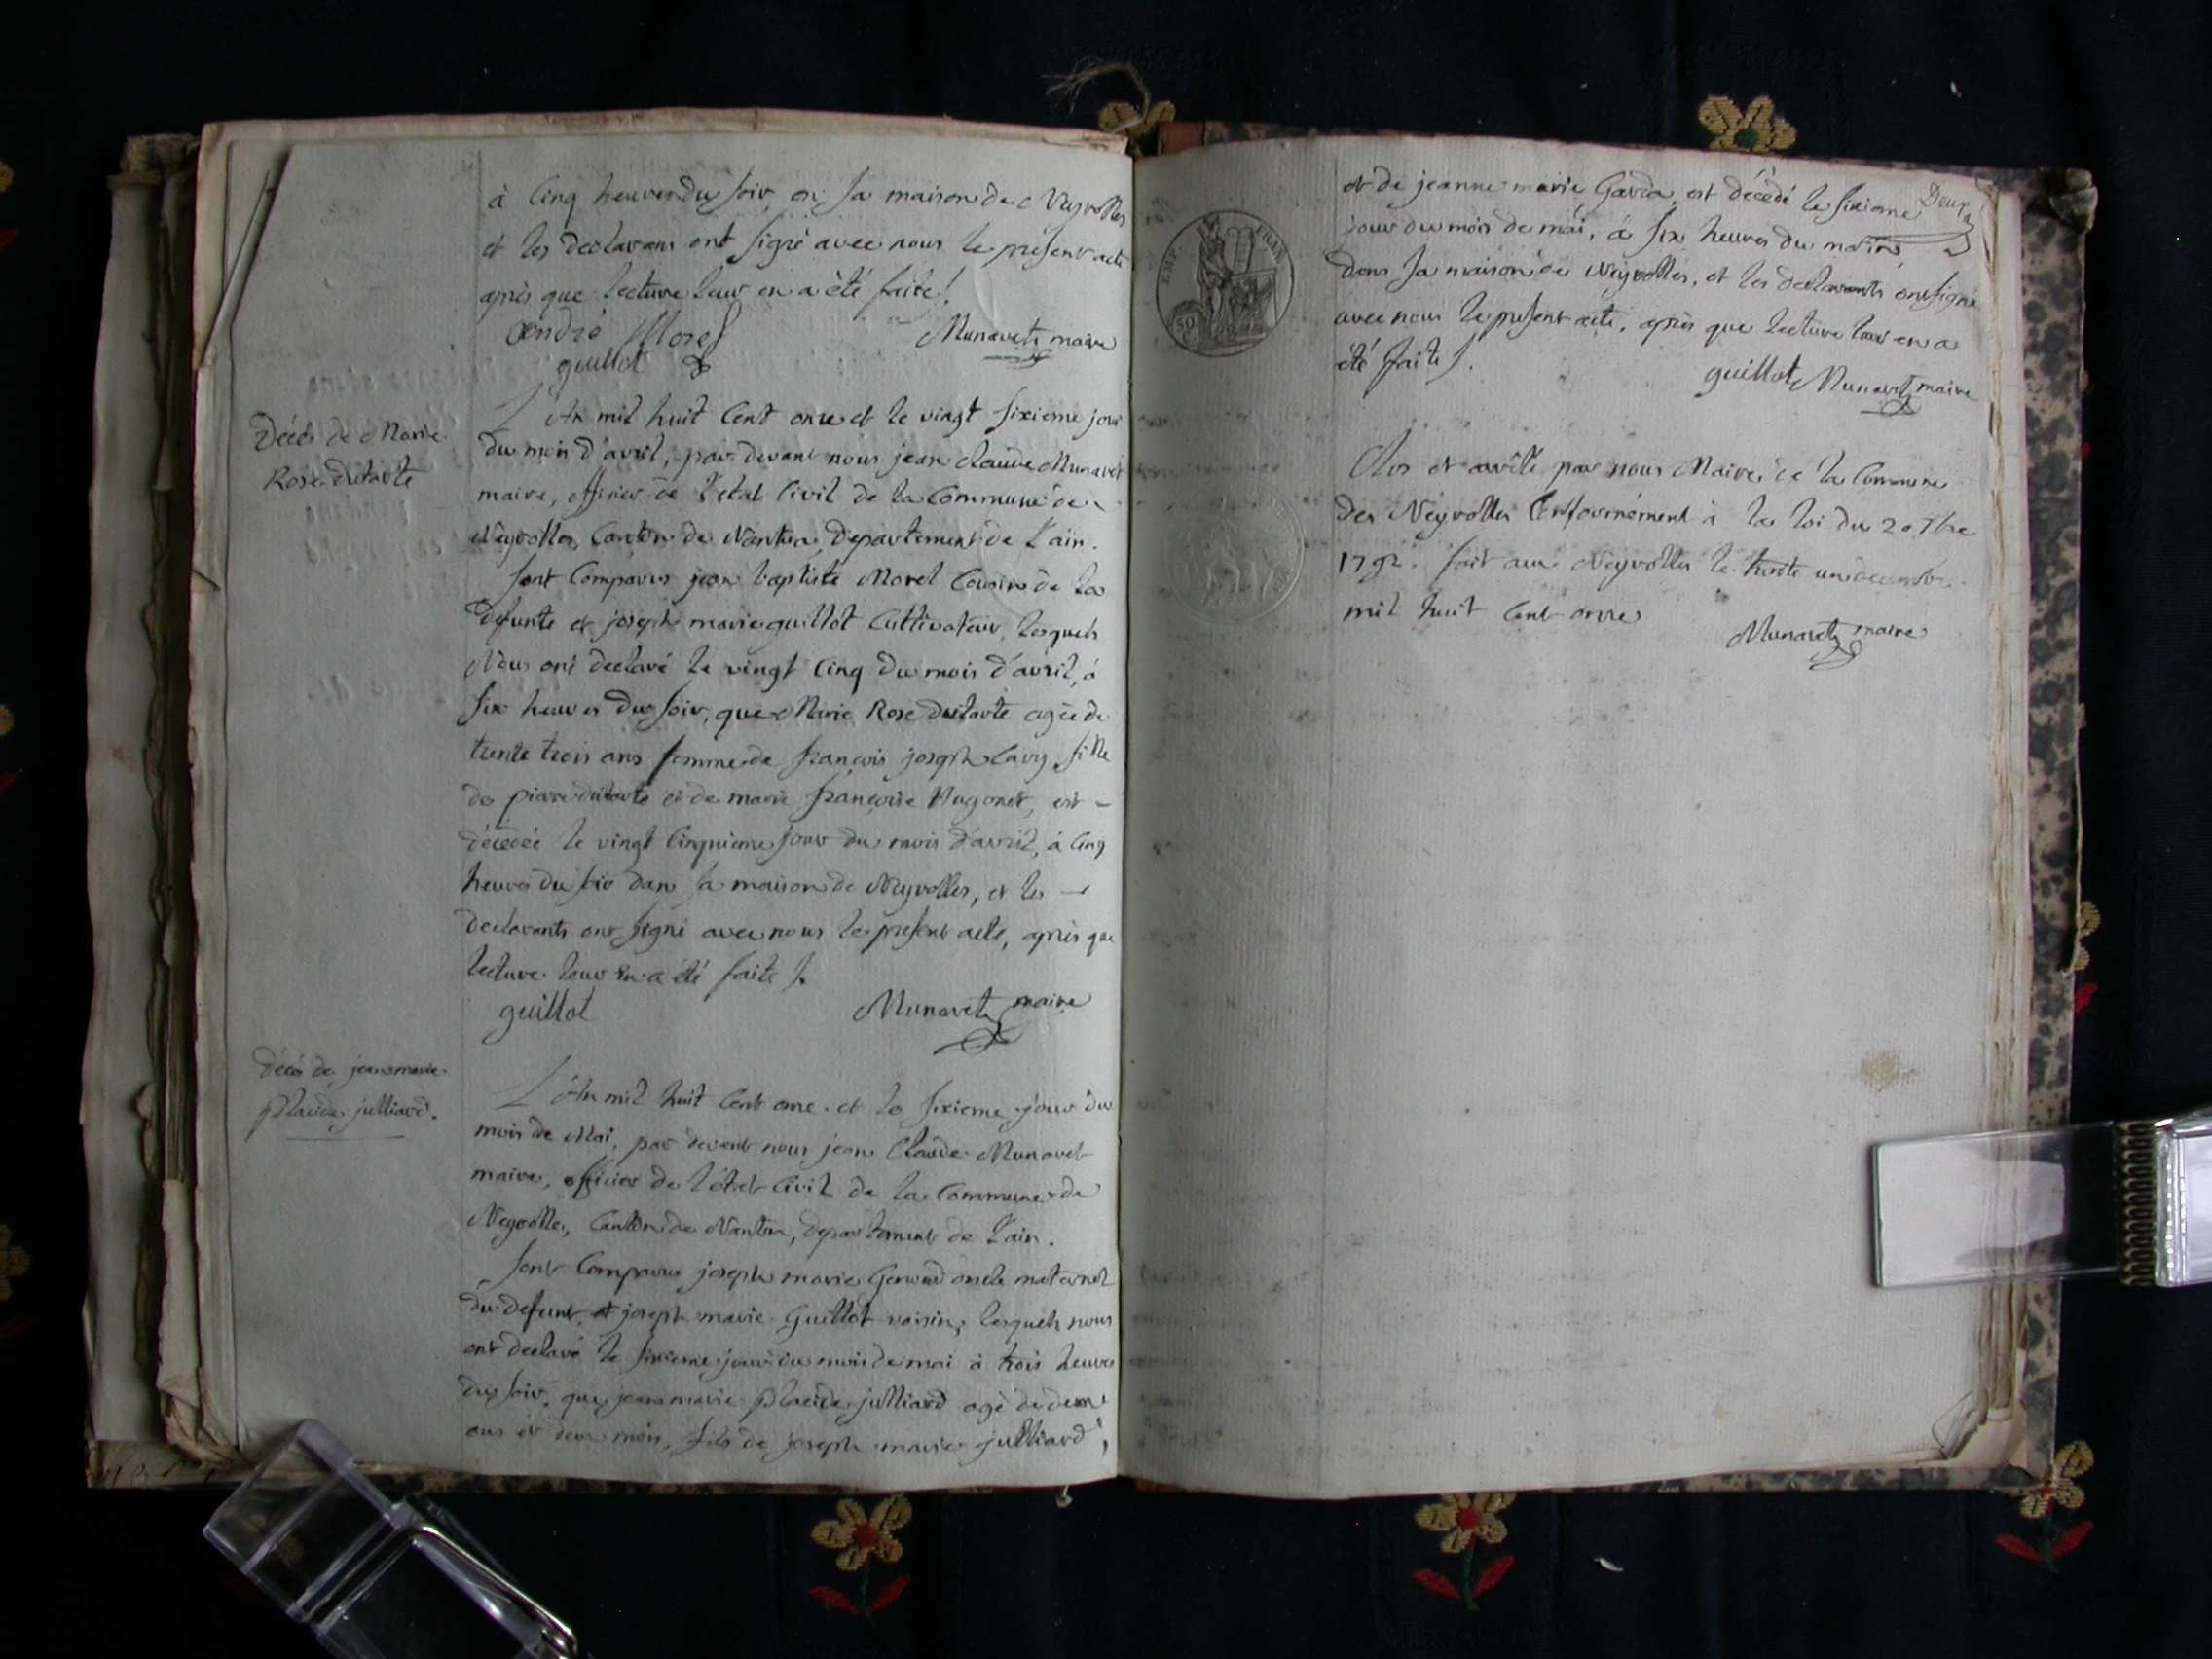 à Cinq heures du soir, en sa maison de Neyrolles
et les declarans ont signé avec nous le présent acte
après que lecture leur en a été faite.
André Morel
Munaret maire
guillot
Décès de Marie
Rose dutarte
L'An mil huit Cent onze et le vingt sixieme jour
du mois d'avril, par devant nous jean claude Munaret
maire, officier de l'etat Civil de la Commune de
Neyrolles, Canton de Nantua, Departement de L'ain.
sont Comparus jean baptiste Morel Cousin de la
défunte et joseph marie guillot Cultivateur, lesquels
Nous ont declaré le vingt Cinq du mois d'avril, à
six heures du soir, que Marie Rose dutarte agée de
trente trois ans femme de françois joseph Cavy fille
de pierre dutarte et de marie françoise Hugonet, est
décédée le vingt Cinquieme jour du mois d'avril, à Cinq
heures du soir dans sa maison de Neyrolles, et les
declarants ont signé avec nous le present acte, après que
lecture leur en a été faite
guillot
Munaret maire
Décès de jean marie
placide julliard.
L'An mil huit Cent onze et le sixieme jour du
mois de Mai, par devant nous jean Claude Munaret
maire, officier de l'état Civil de la Commune de
Neyrolles, Canton de Nantua, departement de L'ain.
sont Comparus joseph marie oncle maternel
du defunt, et joseph marie Guillot voisin, lesquels nous
ont declaré le sixieme jour du mois de mai à trois heures
du soir, que jean marie placide julliard agé de deux
ans et deux mois, fils de joseph marie julliard,
Deux
et de jeanne marie est décédé le sixieme
jour du mois de mai, à six heures du matin
dans sa maison de Neyrolles, et les declarants ont signé
avec nous le present acte, après que lecture leur en a
été faite.
guillot Munaret maire
EMP. FRAN.
50
Clos et arrêté par nous Maire de la Commune
des Neyrolles Conformément à la loi du 20 7bre
1792. fait aux Neyrolles le trente un decembre
mil huit Cent onze
Munaret maire